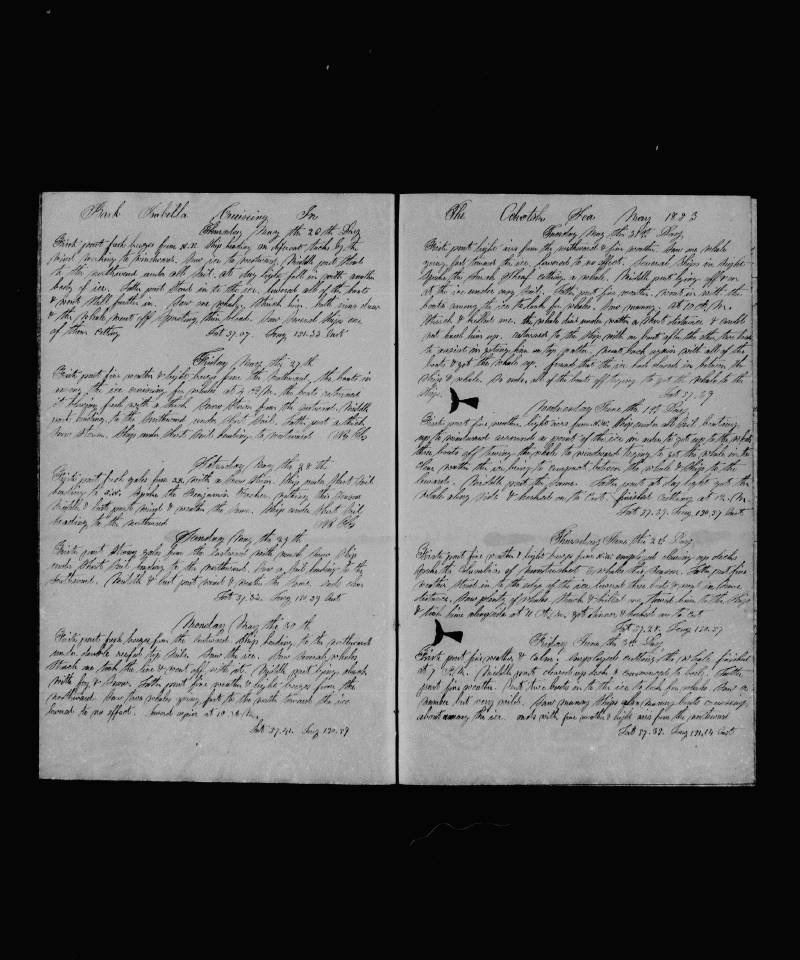 Bark Isabella Cruising In
Thursday May the 26 th Day
First part fresh breeze from N.E. Ship heading on different tacks by the
wind working to windward. Saw ice to westward. Middle part stood
to the northward under all sail. at day light fell in with another
body of ice. Latter part stood in to the ice. lowered all of the boats
& went still further in. Saw one whale, struck him. both irons drew
& the whale went off spouting thin blood. Saw several Ships one
of them cutting
Lat 57.07 Long 151.33 East
Friday May the 27 th
First part fine weather & light breeze from the Southward, the boats in
among the ice cruising for whales at 4 P.M. the boats returned
it blowing fresh with a thick snow storm from the eastward. Middle
part heading to the Southward under short sail. Latter part a thick
snow storm. Ship under short sail heading to northward No Obs
Saturday May the 28 th
First part fresh gales from with a snow storm. Ship under short sail
heading to Spoke the Benjamin Tucker, nothing this season
Middle & last parts wind & weather the same. Ship under short sail
heading to the northward No Obs
Sunday May the 29 th
First part strong gales from the Eastward with much snow. Ship
under short sail heading to the northward. Saw a sail heading to the
Southward. Middle & last part wind & weather the same.
Lat 57.32 Long 150.39 East
Monday May the 30 th
First part fresh breeze from the Eastward. Ship heading to the northward
under double reefed top sails. Saw the ice. Saw several whales
struck one took the line & went off with it. Middle part lying aback
with fog & snow. Latter part fine weather & light breeze from the
northward. Saw two whales going fast to the north toward the ice
lowered to no effect. lowered again at 10 A.M.
Lat 57.41 Long 150.59
The Ochotsk Sea May 1853
Tuesday May the 31st Day
First part light airs from the northward & fine weather. Saw one whale
going fast toward the ice, lowered to no effect. Several Ships in sight.
Spoke the cutting a whale. Middle part lying off & on
at the ice under easy sail. Latter part fine weather. went in with the
boats among the ice to look for whales. Saw many. at 10 A.M.
Struck & killed one. the whale under water a short distance & could
not haul him up. returned to the ship with one boat after the other three boats
to assist in getting him on top water. went back again with all of the
boats & got the whale up. found that the ice had closed in between the
Ship & whale. So ends, all of the boats off trying to get the whale to the
Ship. Lat 57.29
Wednesday June the 1st Day
First part fine weather, light airs from Ship under all sail beating
up to windward around a point of the ice in order to get up to the whale
three boats off towing the whale to windward trying to get the whale in to
clear water the ice being so compact between the whale & Ship to the
leeward. Middle part the same. Latter part at day light got the
whale along side & hooked on to cut. finished cutting at 12 M.
Lat 57.29. Long 150.57 East
Thursday June the 2d Day
First part fine weather & light breeze from employed clearing up decks
spoke the Columbia of Nantucket 2 whales this season. Latter part fine
weather stood in to the edge of the ice lowered three boats & went in some
distance. Saw plenty of whales. Struck & killed one, towed him to the Ship
& took him alongside at 11 A.M. got dinner & hooked on to cut
Lat 57.28. Long 150.57
Friday June the 3d Day
First part fine weather & calm. Employed cutting the whale, finished
at 7 P.M. Middle part cleared up deck & commenced to boil. Latter
part fine weather. sent two boats in to the ice to look for whales. Saw a
number but very wild. Saw many Ships also many boats cruising
about among the ice. ends with fine weather & light airs from the northward
Lat 57.32. Long 151.14 East